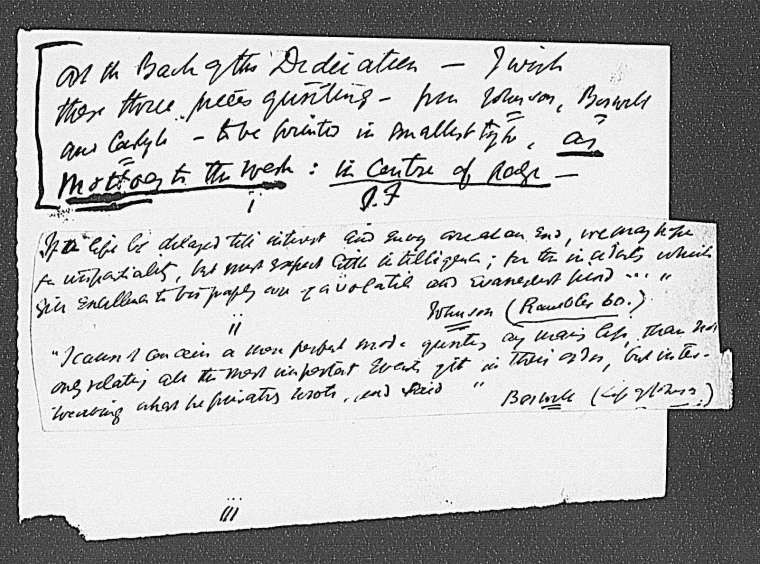 At the Back of this Dedication — I wish
these three pieces quoting — from Johnson, Boswell
and Carlyle — to be printed in smallest type, as
Mottoes to the work : in centre of page —
J.F
i
If a life be delayed till interest and envy are at an end, we may hope
for impartiality, but must expect little intelligence; for the incidents which
give excellence to biography are of a volatile and evanescent kind ... "
Johnson (Rambler 60.)
ii
"I cannot conceive a more perfect mode of writing any man's life, than not
only relating all the most important events of it in their order, but inter-
weaving what he privately wrote, and said "
Boswell (Life of Johnson.)
iii